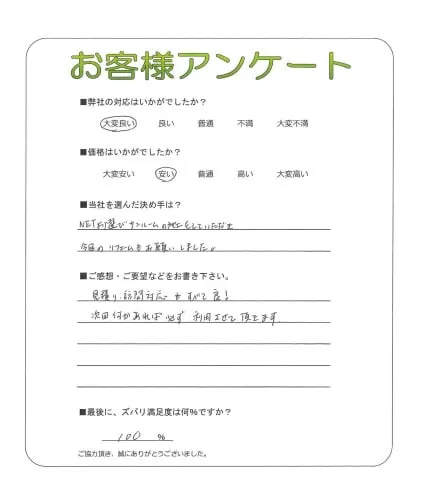 お客様アンケート
■弊社の対応はいかがでしたか？
大変良い 良い 普通 不満 大変不満
■価格はいかがでしたか？
大変安い 安い 普通 高い 大変高い
■当社を選んだ決め手は？
NETで選びサンルームの施工をしていただき
今回のリフォームもお願いしました。
■ご感想・ご要望などをお書き下さい。
見積り、訪問対応もすべて良！
次回何かあれば必ず利用させて頂きます。
■最後に、ズバリ満足度は何％ですか？
100 ％
ご協力頂き、誠にありがとうございました。